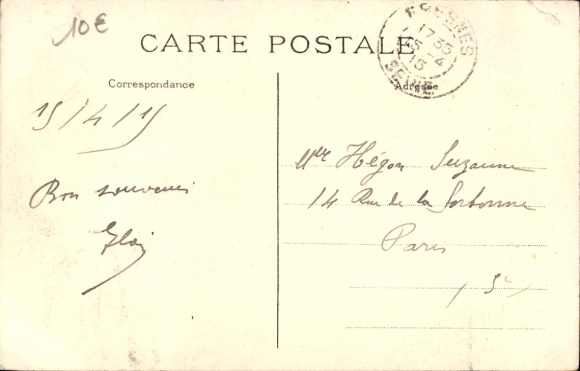 10€
CARTE POSTALE
FRESNES
17 35
15 - 4
15
SEINE
Correspondance
Adresse
15/4/15
Bon souvenir
Mlle Hégon Suzanne
14 Rue de la Sorbonne
Paris
5e